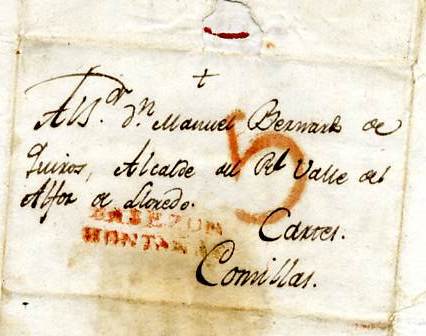 +
Al S.r d.n Manuel Bernardo de
Quiros, Alcalde del Rl Valle del
Alfoz de Lloredo.
5
CABEZON
MONTAÑA
Cartes.
Comillas.